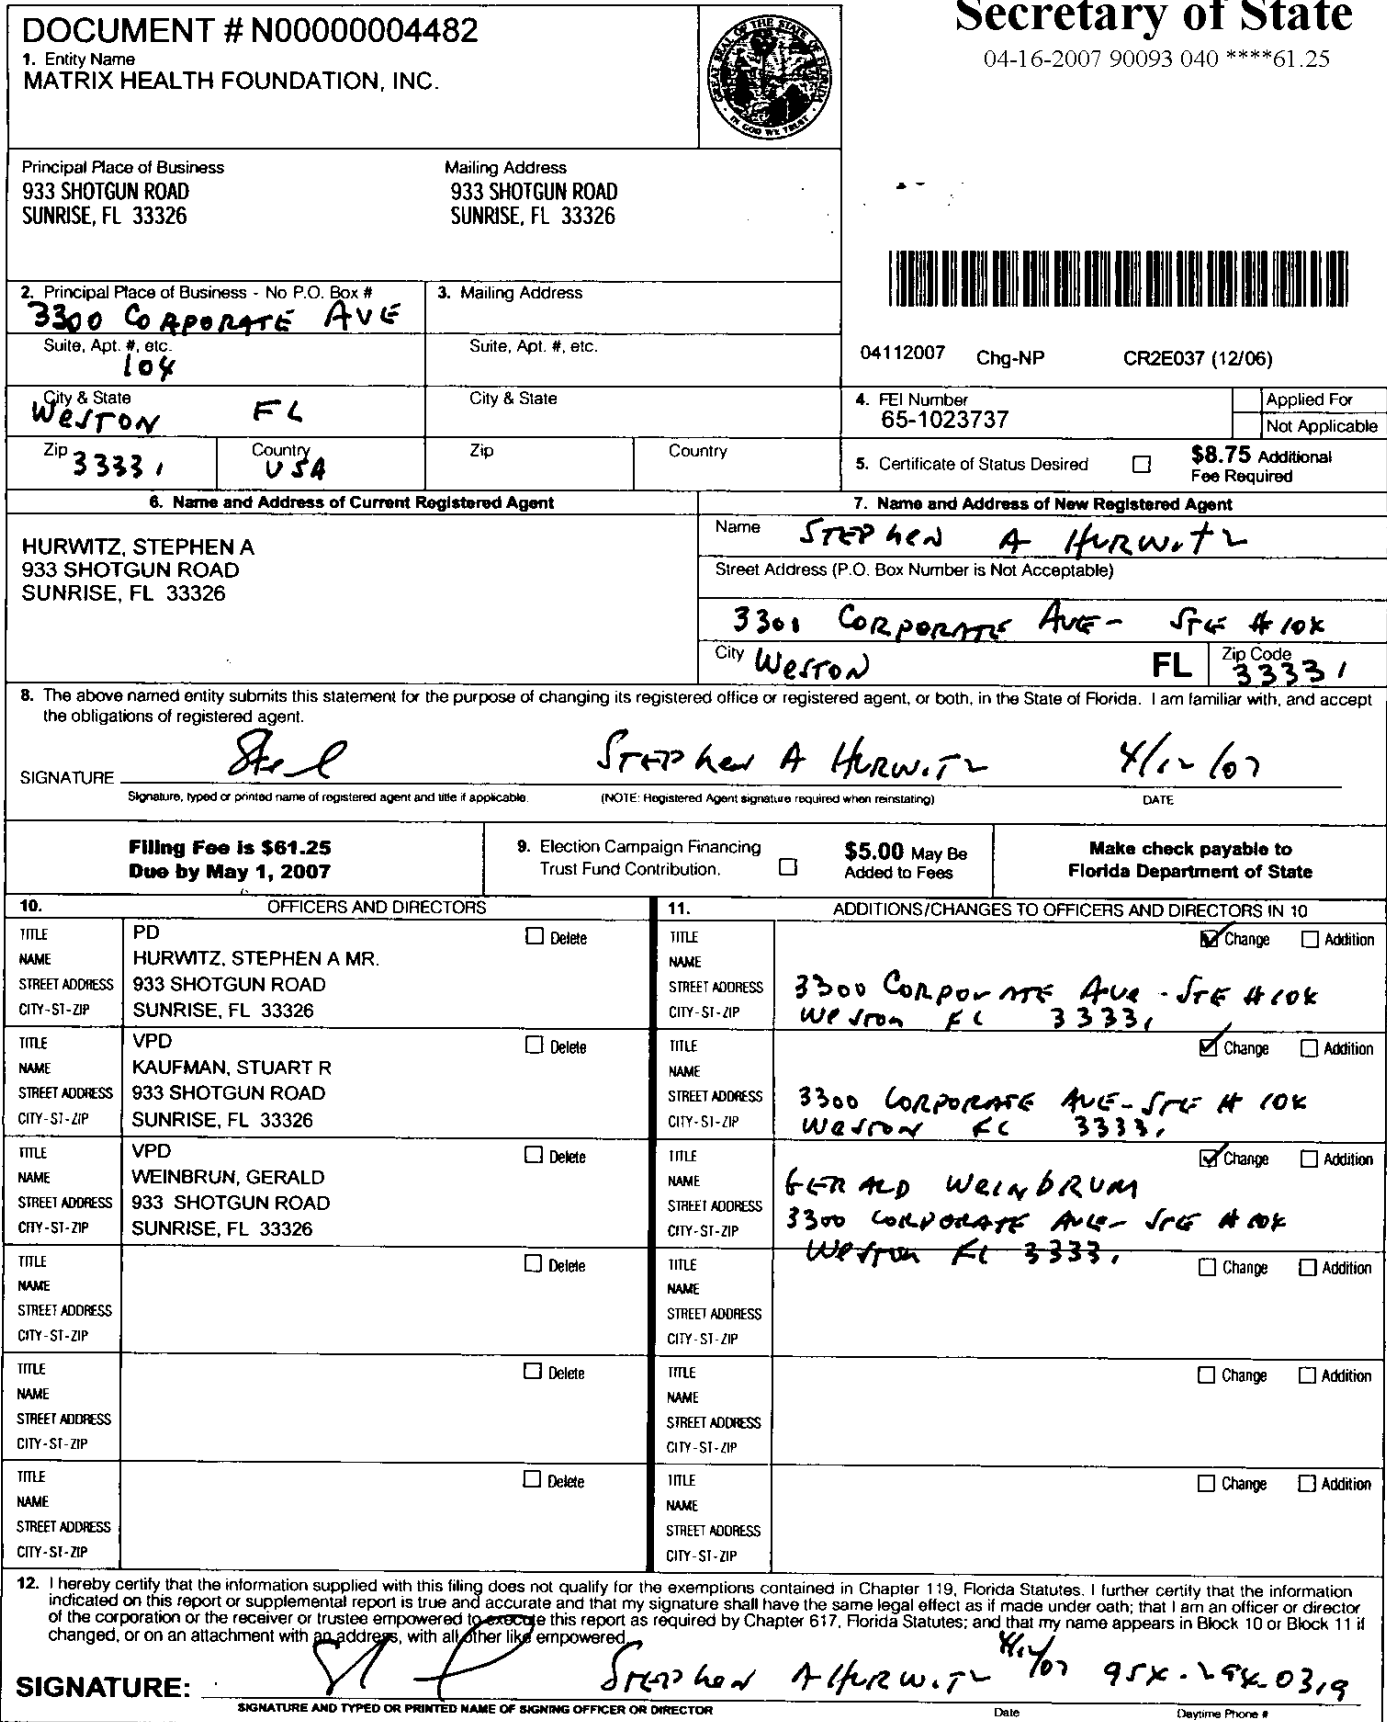 Secretary of State
04-16-2007 90093 040 ****61.25
DOCUMENT # N00000004482
1. Entity Name
MATRIX HEALTH FOUNDATION, INC.
GREAT SEAL OF THE STATE OF FLORIDA
IN GOD WE TRUST
Principal Place of Business
933 SHOTGUN ROAD
SUNRISE, FL 33326
Mailing Address
933 SHOTGUN ROAD
SUNRISE, FL 33326
2. Principal Place of Business - No P.O. Box #
3300 CORPORATE AVE
3. Mailing Address
Suite, Apt. #, etc.
104
Suite, Apt. #, etc.
City & State
WESTON FL
City & State
Zip 33331
Country USA
Zip
Country
04112007 Chg-NP CR2E037 (12/06)
4. FEI Number
65-1023737
Applied For
Not Applicable
5. Certificate of Status Desired
$8.75 Additional
Fee Required
6. Name and Address of Current Registered Agent
HURWITZ, STEPHEN A
933 SHOTGUN ROAD
SUNRISE, FL 33326
7. Name and Address of New Registered Agent
Name STEPHEN A HURWITZ
Street Address (P.O. Box Number is Not Acceptable)
3301 CORPORATE AVE- STE #104
City WESTON FL Zip Code 33331
8. The above named entity submits this statement for the purpose of changing its registered office or registered agent, or both, in the State of Florida. I am familiar with, and accept
the obligations of registered agent.
SIGNATURE STEPHEN A HURWITZ 4/12/07
Signature, typed or printed name of registered agent and title if applicable. (NOTE: Registered Agent signature required when reinstating) DATE
Filing Fee is $61.25
Due by May 1, 2007
9. Election Campaign Financing
Trust Fund Contribution.
$5.00 May Be
Added to Fees
Make check payable to
Florida Department of State
10. OFFICERS AND DIRECTORS
TITLE PD Delete
NAME HURWITZ, STEPHEN A MR.
STREET ADDRESS 933 SHOTGUN ROAD
CITY-ST-ZIP SUNRISE, FL 33326
TITLE VPD Delete
NAME KAUFMAN, STUART R
STREET ADDRESS 933 SHOTGUN ROAD
CITY-ST-ZIP SUNRISE, FL 33326
TITLE VPD Delete
NAME WEINBRUN, GERALD
STREET ADDRESS 933 SHOTGUN ROAD
CITY-ST-ZIP SUNRISE, FL 33326
TITLE Delete
NAME
STREET ADDRESS
CITY-ST-ZIP
TITLE Delete
NAME
STREET ADDRESS
CITY-ST-ZIP
TITLE Delete
NAME
STREET ADDRESS
CITY-ST-ZIP
11. ADDITIONS/CHANGES TO OFFICERS AND DIRECTORS IN 10
TITLE Change Addition
NAME
STREET ADDRESS 3300 CORPORATE AVE - STE #104
CITY-ST-ZIP WESTON FL 33331
TITLE Change Addition
NAME
STREET ADDRESS 3300 CORPORATE AVE-STE # 104
CITY-ST-ZIP WESTON FL 33331
TITLE Change Addition
NAME GERALD WEINBRUM
STREET ADDRESS 3300 CORPORATE AVE- STE #104
CITY-ST-ZIP WESTON FL 33331
TITLE Change Addition
NAME
STREET ADDRESS
CITY-ST-ZIP
TITLE Change Addition
NAME
STREET ADDRESS
CITY-ST-ZIP
TITLE Change Addition
NAME
STREET ADDRESS
CITY-ST-ZIP
12. I hereby certify that the information supplied with this filing does not qualify for the exemptions contained in Chapter 119, Florida Statutes. I further certify that the information
indicated on this report or supplemental report is true and accurate and that my signature shall have the same legal effect as if made under oath; that I am an officer or director
of the corporation or the receiver or trustee empowered to execute this report as required by Chapter 617, Florida Statutes; and that my name appears in Block 10 or Block 11 if
changed, or on an attachment with an address, with all other like empowered.
SIGNATURE: STEPHEN A HURWITZ 4/12/07 954-294-0319
SIGNATURE AND TYPED OR PRINTED NAME OF SIGNING OFFICER OR DIRECTOR Date Daytime Phone #